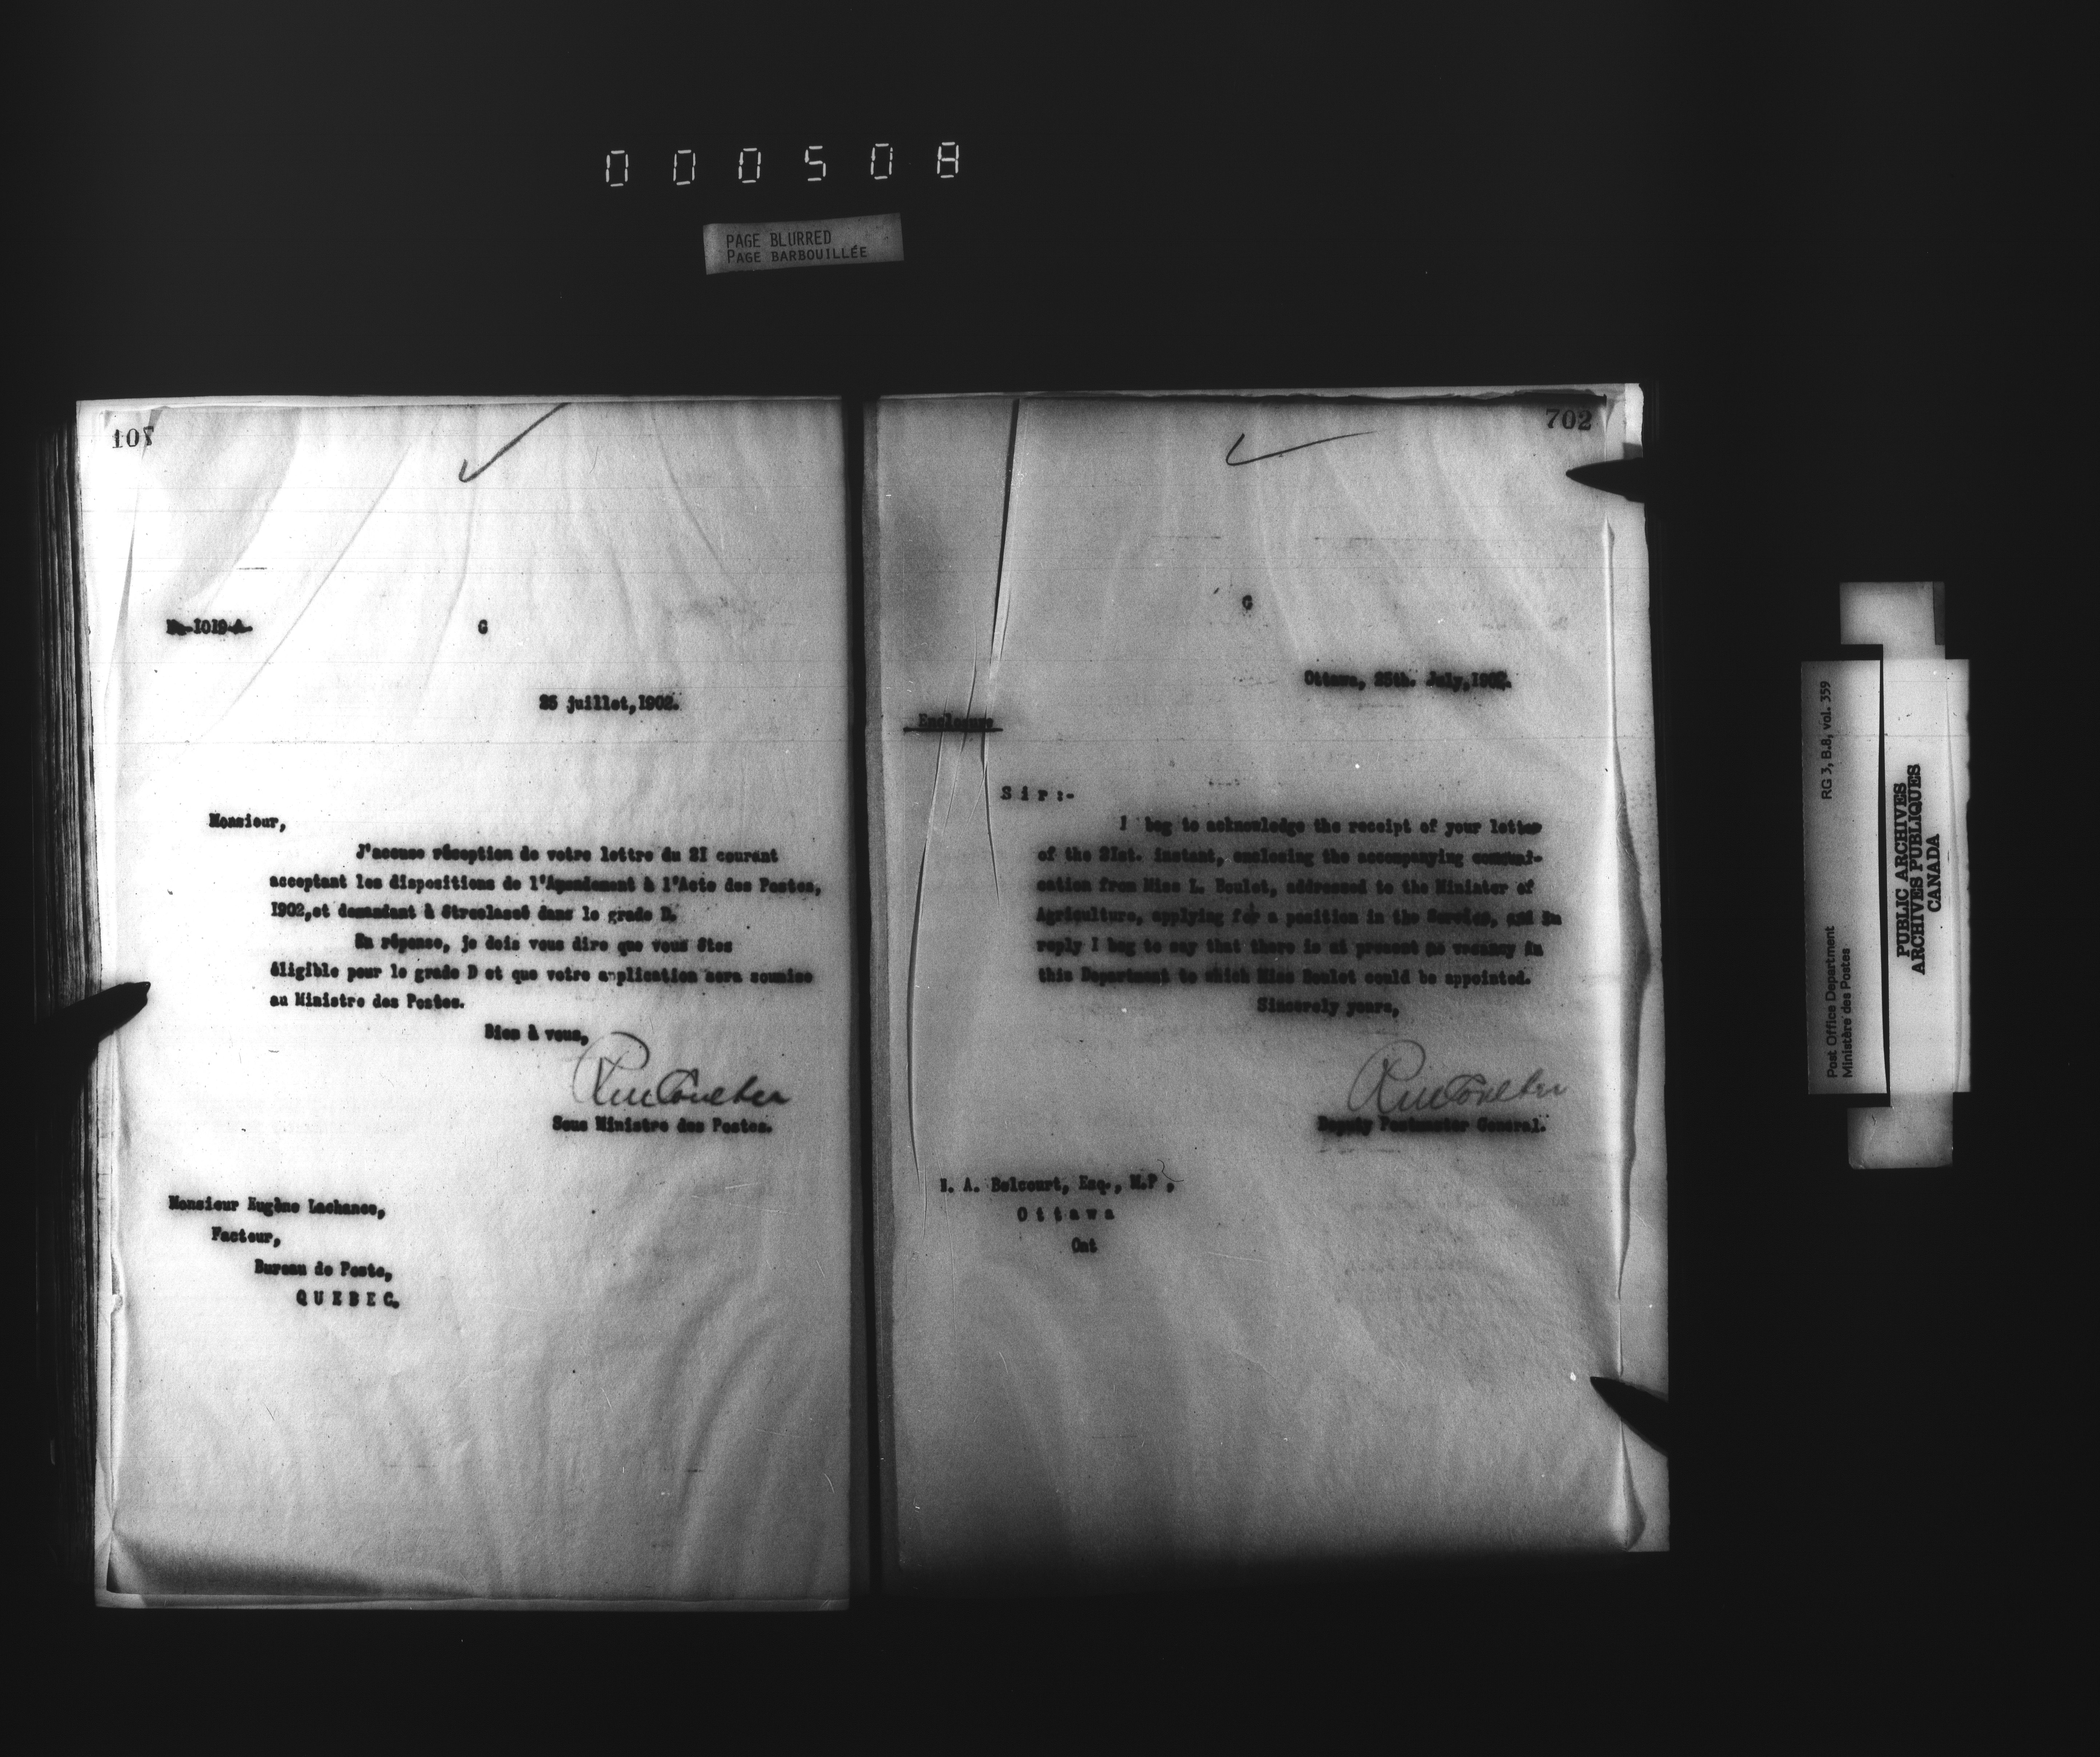 000508
PAGE BLURRED
PAGE BARBOUILLÉE
107
No-1019-A-
G
25 juillet,1902.
Monsieur,
J'accuse réception de votre lettre du 2I courant
acceptant les dispositions de l'Amendement à l'Acte des Postes,
1902,et demandant à êtreclassé dans le grade D.
En réponse, je dois vous dire que vous êtes
éligible pour le grade D et que votre application sera soumise
au Ministre des Postes.
Bien à vous,
RM Coulter
Sous Ministre des Postes.
Monsieur Eugène Lachance,
Facteur,
Bureau de Poste,
QUEBEC.
702
G
Ottawa, 25th. July,1902.
Enclosure
Sir:-
I beg to acknowledge the receipt of your letter
of the 2Ist. instant, enclosing the accompanying communi-
cation from Miss L. Boulet, addressed to the Minister of
Agriculture, applying for a position in the Service, and in
reply I beg to say that there is at present no vacancy in
this Department to which Miss Boulet could be appointed.
Sincerely yours,
RM Coulter
Deputy Postmaster General.
N. A. Belcourt, Esq., M.P.,
Ottawa
Ont
Post Office Department
Ministère des Postes
RG 3, B.8, vol. 359
PUBLIC ARCHIVES
ARCHIVES PUBLIQUES
CANADA